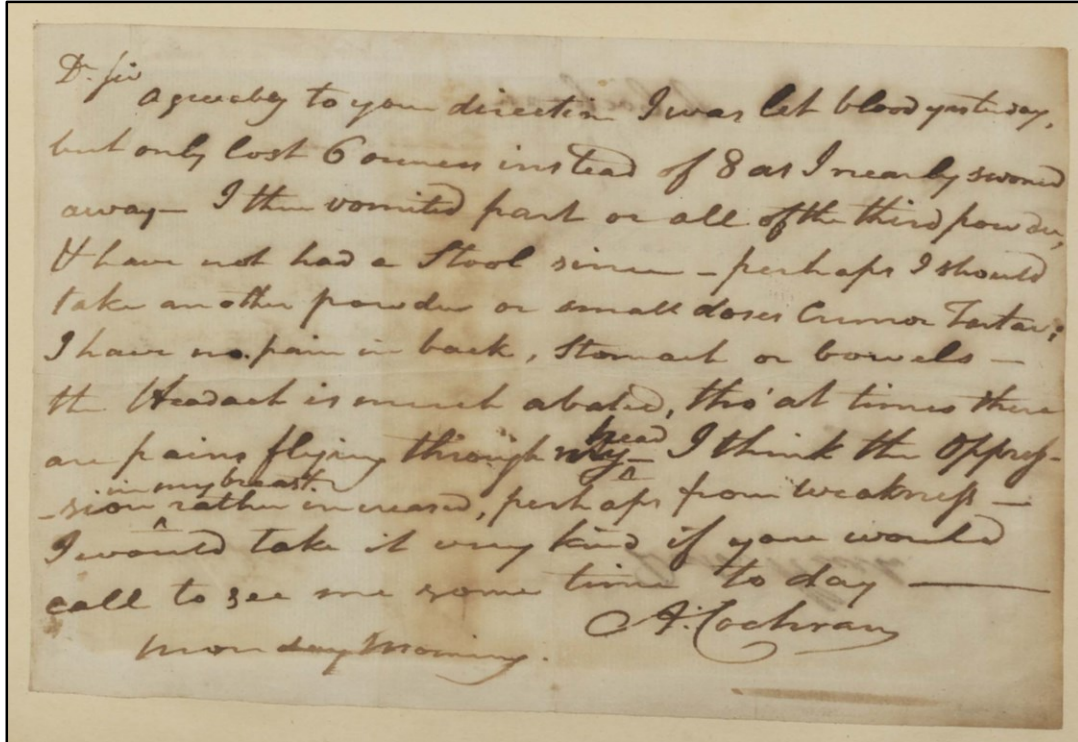 Dr Sir
Agreeably to your direction I was let blood yesterday,
but only lost 6 ounces instead of 8 as I nearly swoned
away — I then vomited part or all of the third powder,
& have not had a Stool since — perhaps I should
take another powder or small doses Cremor Tartar;
I have no pain in back, Stomach or bowels —
the Headach is much abated, tho' at times there
are pains flying through my head — I think the Oppres-
-sion in my breast rather increased, perhaps from weakness —
I would take it very kind if you would
call to see me some time to day —
A. Cochran
Monday Morning.